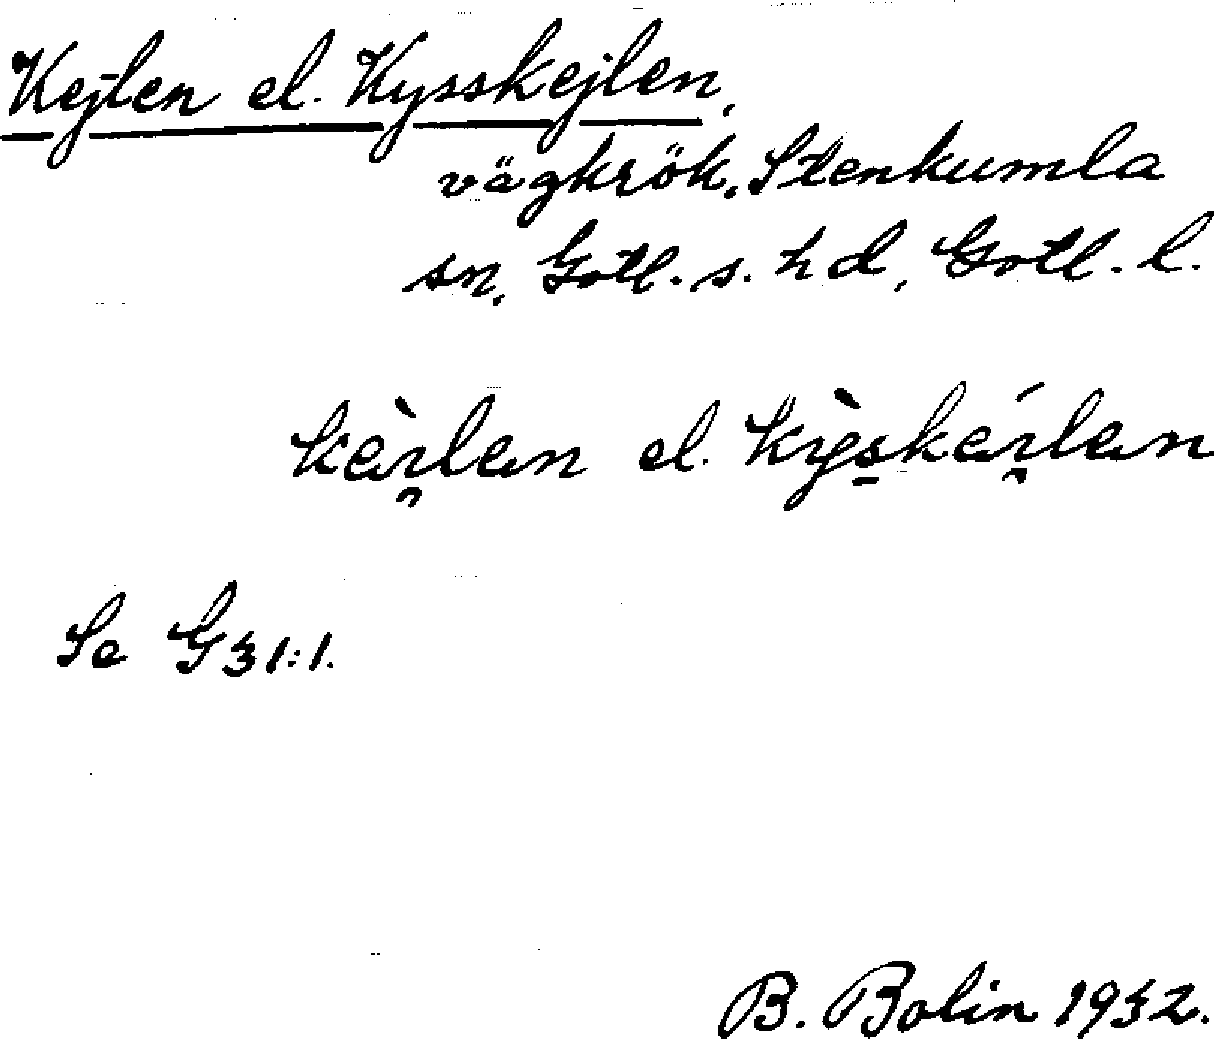 Kejlen el. Kysskejlen,
vägkrök, Stenkumla
sn, Gotl. s. hd, Gotl. l.
el.
Se G31:1.
B. Bolin 1932.